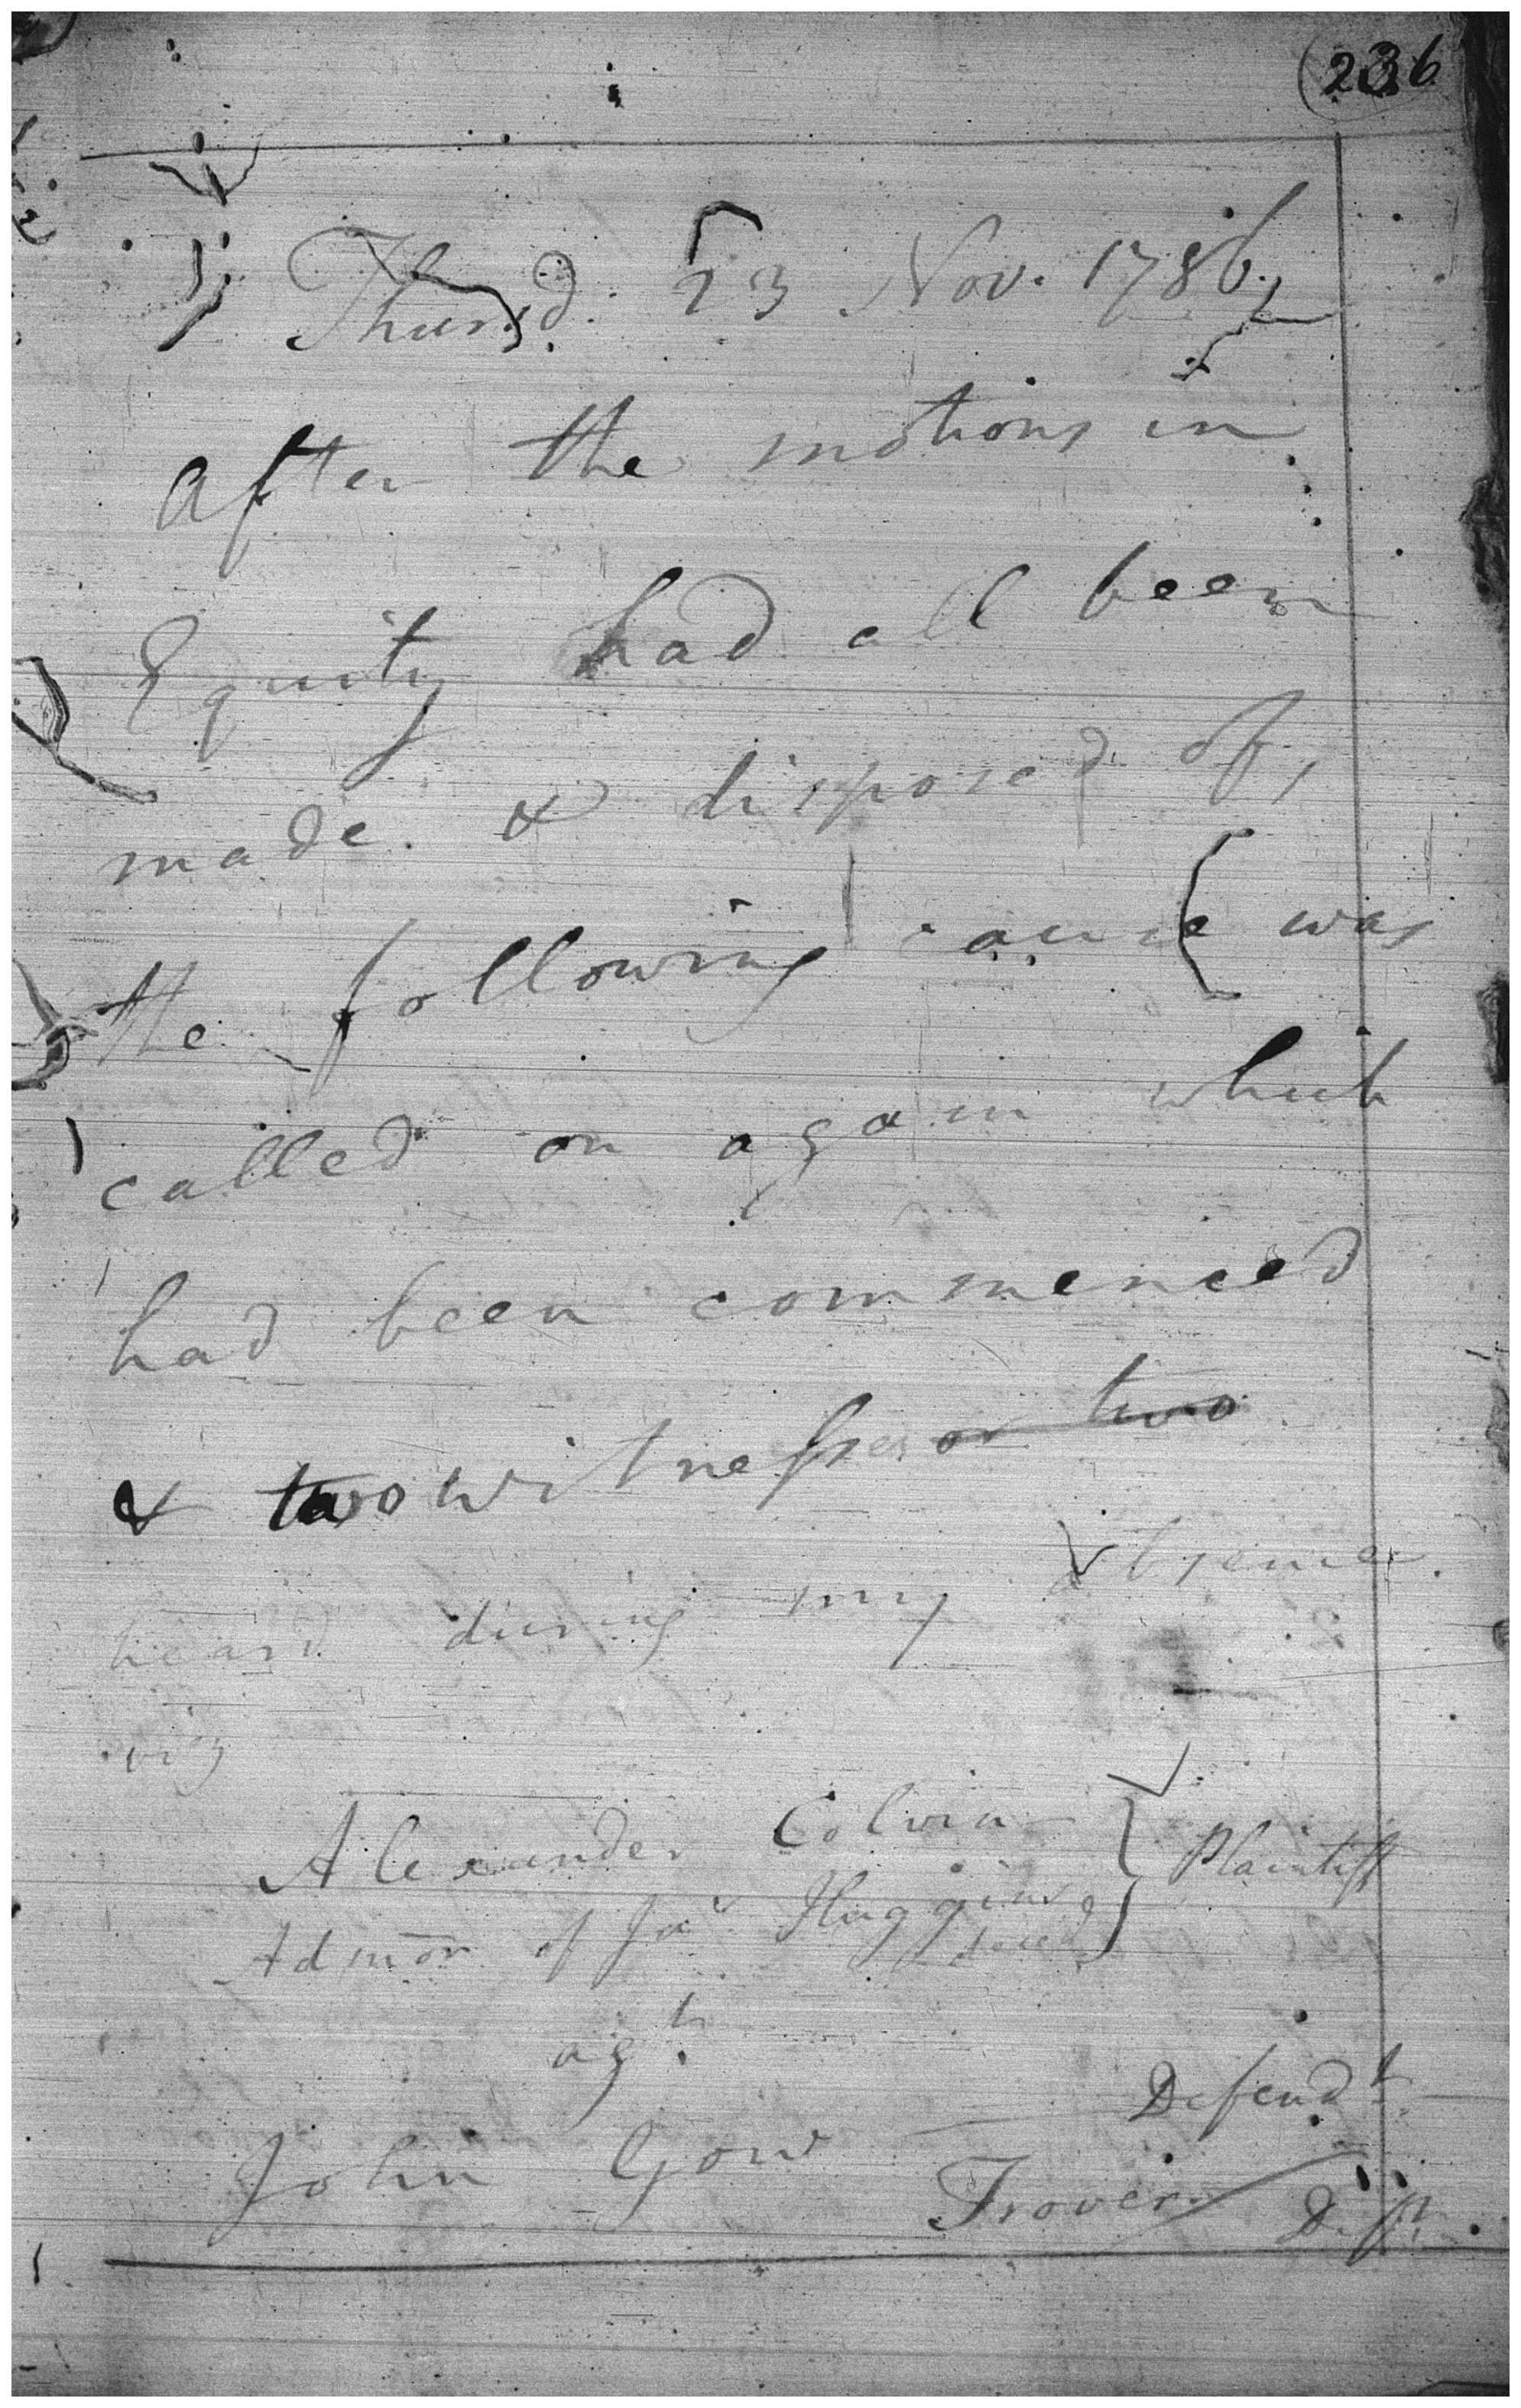 236
Thursd. 23 Nov. 1786,
After the motions in
Equity had all been
made & disposed of,
the following cause was
called on again which
had been commenced
& two witnesses or two
heard during my absence.
viz
Alexander Colvin } Plaintiff
Admōn of Jas Huggins
decd
agt.
Defendt.
John Gow
Trover